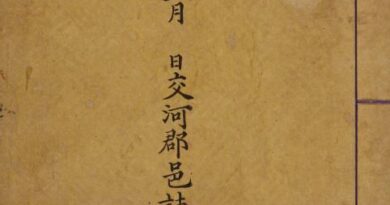 月 日交河郡邑誌